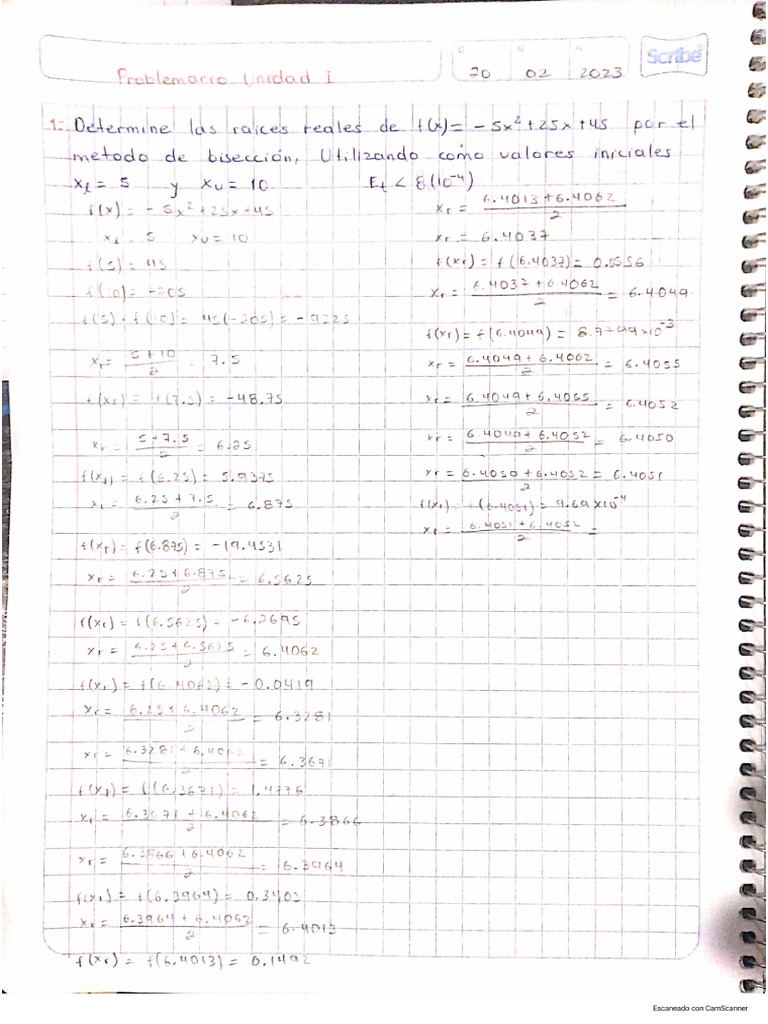 Problemario Unidad I
D M A
20 02 2023
Scribe
1.- Determine las raices reales de f(x)= -5x²+25x+45 por el
metodo de bisección, Utilizando como valores iniciales
xl = 5 y xu = 10 Et < 8(10⁻⁴)
f(x) = -5x²+25x+45
xl = 5 xu = 10
f(5) = 45
f(10) = -205
f(5) · f(10) = 45(-205) = -9225
xr = 5+10/2 = 7.5
f(xr) = f(7.5) = -48.75
xr = 5+7.5/2 = 6.25
f(xr) = f(6.25) = 5.9375
xr = 6.25+7.5/2 = 6.875
f(xr) = f(6.875) = -19.4531
xr = 6.25+6.875/2 = 6.5625
f(xr) = f(6.5625) = -6.2695
xr = 6.25+6.5625/2 = 6.4062
f(xr) = f(6.4062) = -0.0419
xr = 6.25+6.4062/2 = 6.3281
xr = 6.3281+6.4062/2 = 6.3671
f(xr) = f(6.3671) = 1.4776
xr = 6.3671+6.4062/2 = 6.3866
xr = 6.3866+6.4062/2 = 6.3964
f(xr) = f(6.3964) = 0.3402
xr = 6.3964+6.4062/2 = 6.4013
f(xr) = f(6.4013) = 0.1492
xr = 6.4013+6.4062/2
xr = 6.4037
f(xr) = f(6.4037) = 0.0556
xr = 6.4037+6.4062/2 = 6.4049
f(xr) = f(6.4049) = 8.7499x10⁻³
xr = 6.4049+6.4062/2 = 6.4055
xr = 6.4049+6.4055/2 = 6.4052
xr = 6.4049+6.4052/2 = 6.4050
xr = 6.4050+6.4052/2 = 6.4051
f(xr) = f(6.4051) = 9.69x10⁻⁴
xr = 6.4051+6.4052/2 =
Escaneado con CamScanner